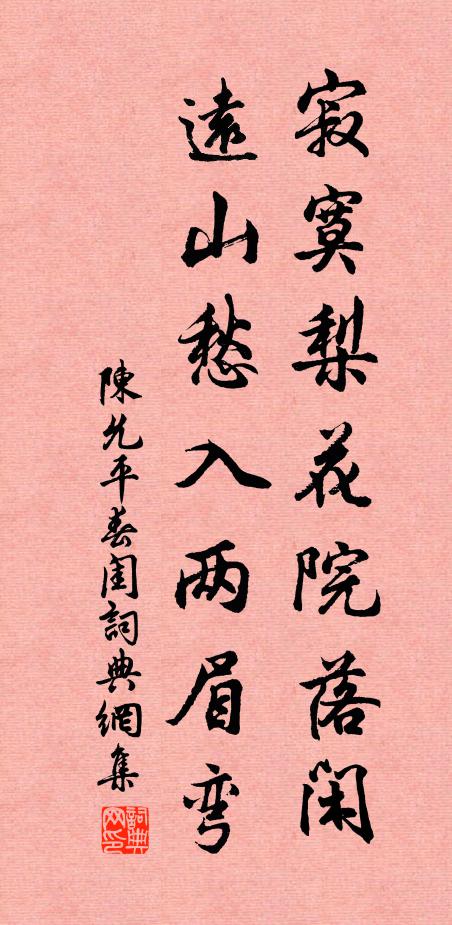 寂寞梨花院落闲
遠山愁入两眉弯
陳允平春闺詞典網集
詞典网印